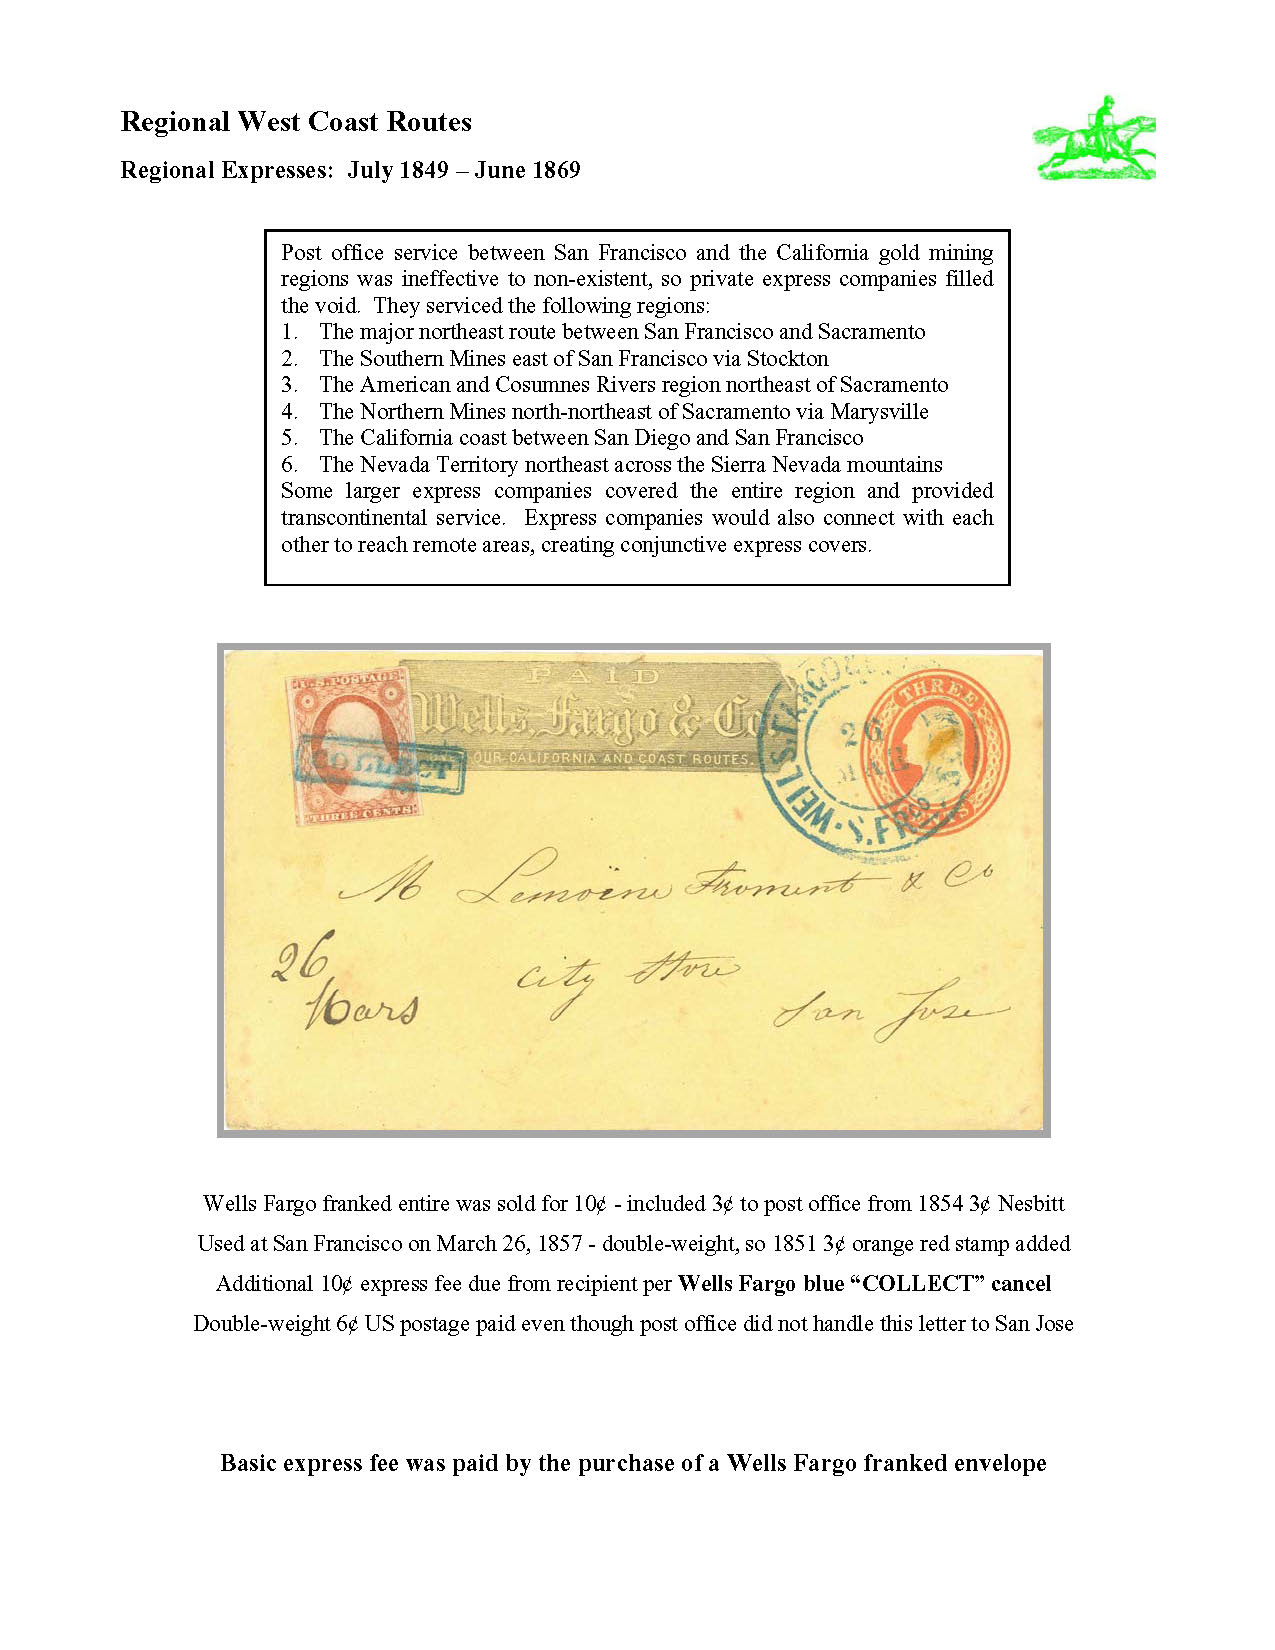 Regional West Coast Routes
Regional Expresses: July 1849 – June 1869
Post office service between San Francisco and the California gold mining
regions was ineffective to non-existent, so private express companies filled
the void. They serviced the following regions:
1. The major northeast route between San Francisco and Sacramento
2. The Southern Mines east of San Francisco via Stockton
3. The American and Cosumnes Rivers region northeast of Sacramento
4. The Northern Mines north-northeast of Sacramento via Marysville
5. The California coast between San Diego and San Francisco
6. The Nevada Territory northeast across the Sierra Nevada mountains
Some larger express companies covered the entire region and provided
transcontinental service. Express companies would also connect with each
other to reach remote areas, creating conjunctive express covers.
U.S. POSTAGE
THREE CENTS
COLLECT
PAID
Wells, Fargo & Co.
OUR CALIFORNIA AND COAST ROUTES.
WELLS. FARGO
26
MAR
S. FR
THREE
CENTS
M Lemoïne Froment & Co
26
Mars
City Store
San Jose
Wells Fargo franked entire was sold for 10¢ - included 3¢ to post office from 1854 3¢ Nesbitt
Used at San Francisco on March 26, 1857 - double-weight, so 1851 3¢ orange red stamp added
Additional 10¢ express fee due from recipient per Wells Fargo blue “COLLECT” cancel
Double-weight 6¢ US postage paid even though post office did not handle this letter to San Jose
Basic express fee was paid by the purchase of a Wells Fargo franked envelope